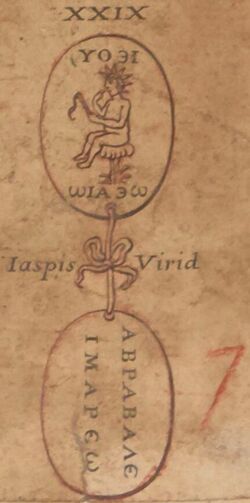 XXIX
ΥΟ ЭΙ
ωΙΑ Эω
Iaspis Virid
ΑΒΡΑΒΑΛЄ
ΙΜΑΡЄω
7